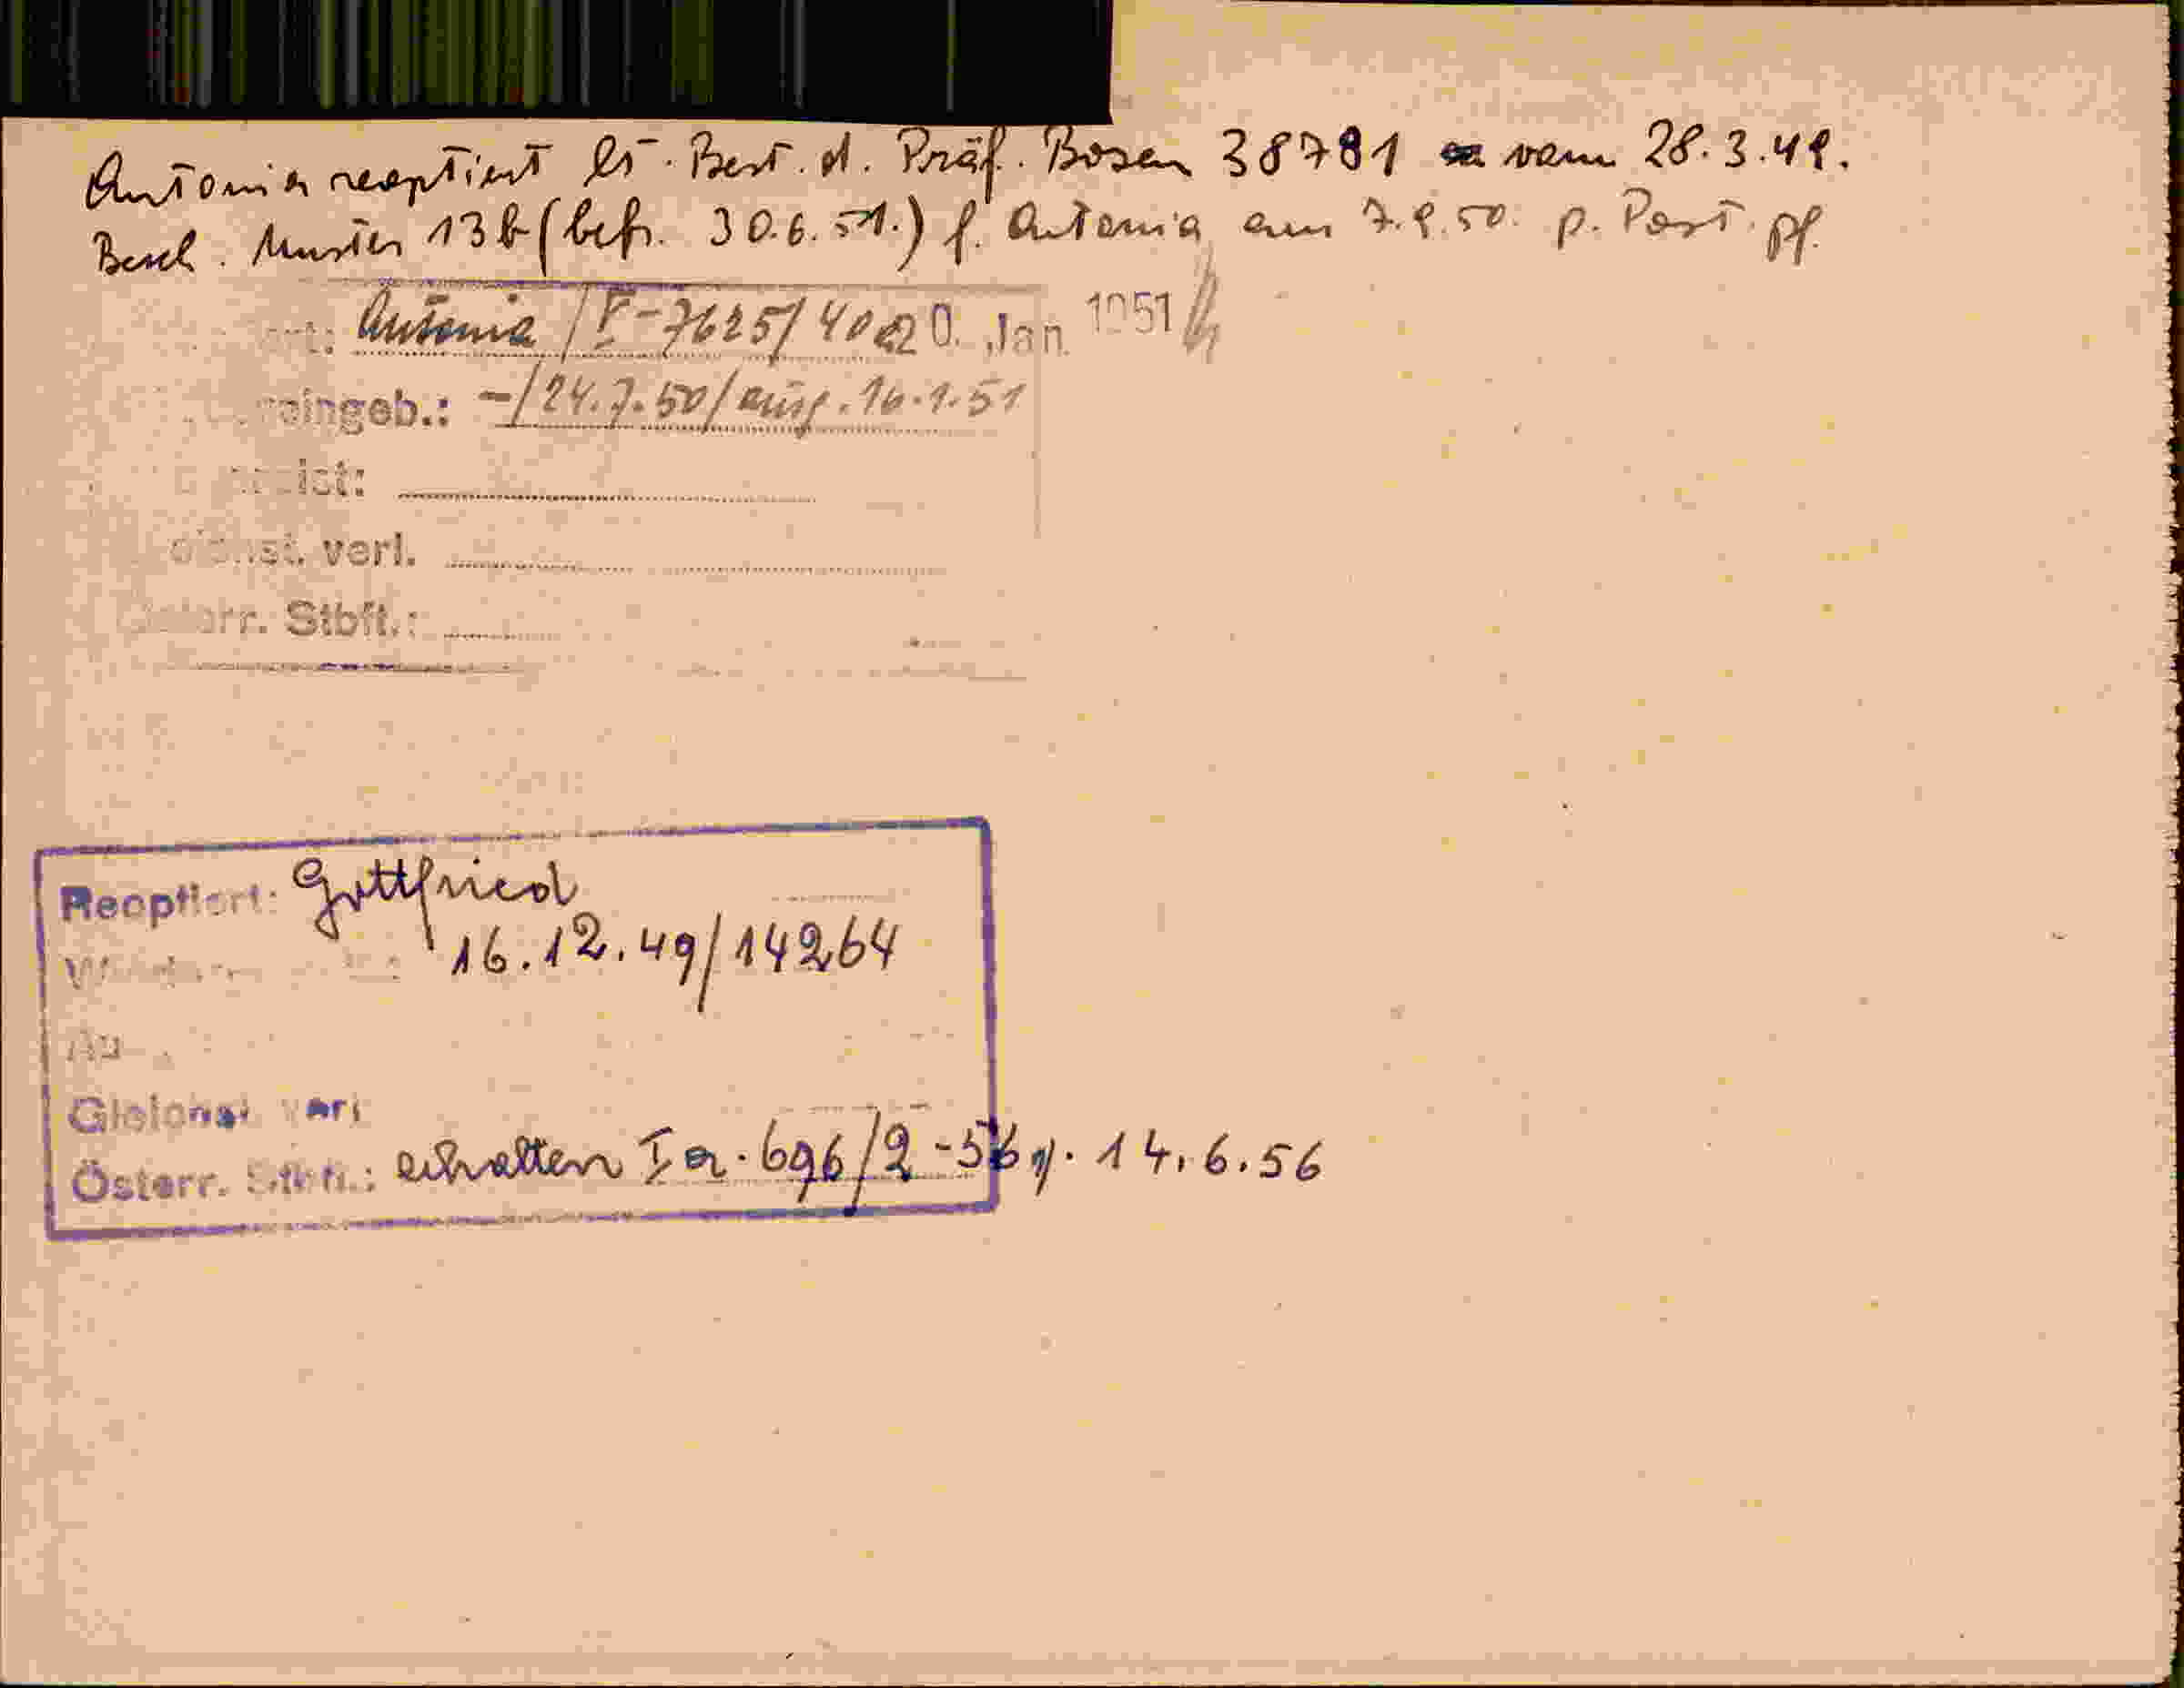 Antonia reoptiert lt. Best. d. Präf. Bozen 38781 vom 28.3.49.
Besch. Muster 13b (befr. 30.6.51.) f. Antonia am 7.9.50. p. Post. pf.
Antonia / V-7625/40 20. Jan. 1951
eingeb.: -/24.7.50/ausg. 16.1.51
verl.
Österr. Stbft.:
Reoptiert: Gottfried
16.12.49/14264
Gleichst. verl
Österr. Stbft.: erhalten Ia-696/2-56 v. 14.6.56